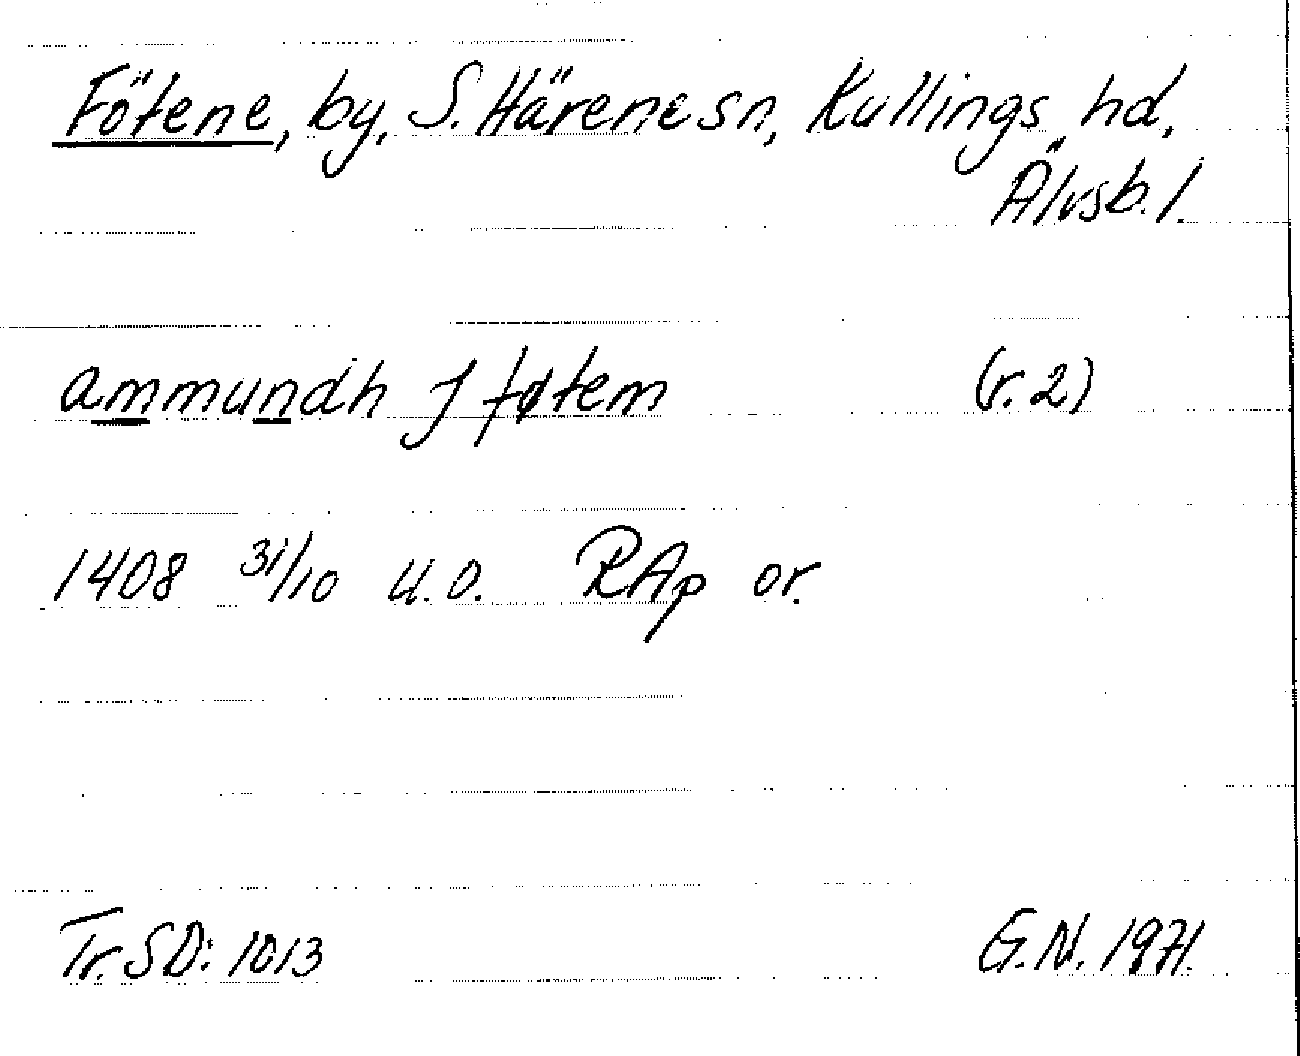 Fötene, by, S. Härene sn, Kullings hd,
Älvsb. l.
ammundh J føtem (r. 2)
1408 31/10 u.o. RAp or.
Tr. SD: 1013 G.N. 1971.